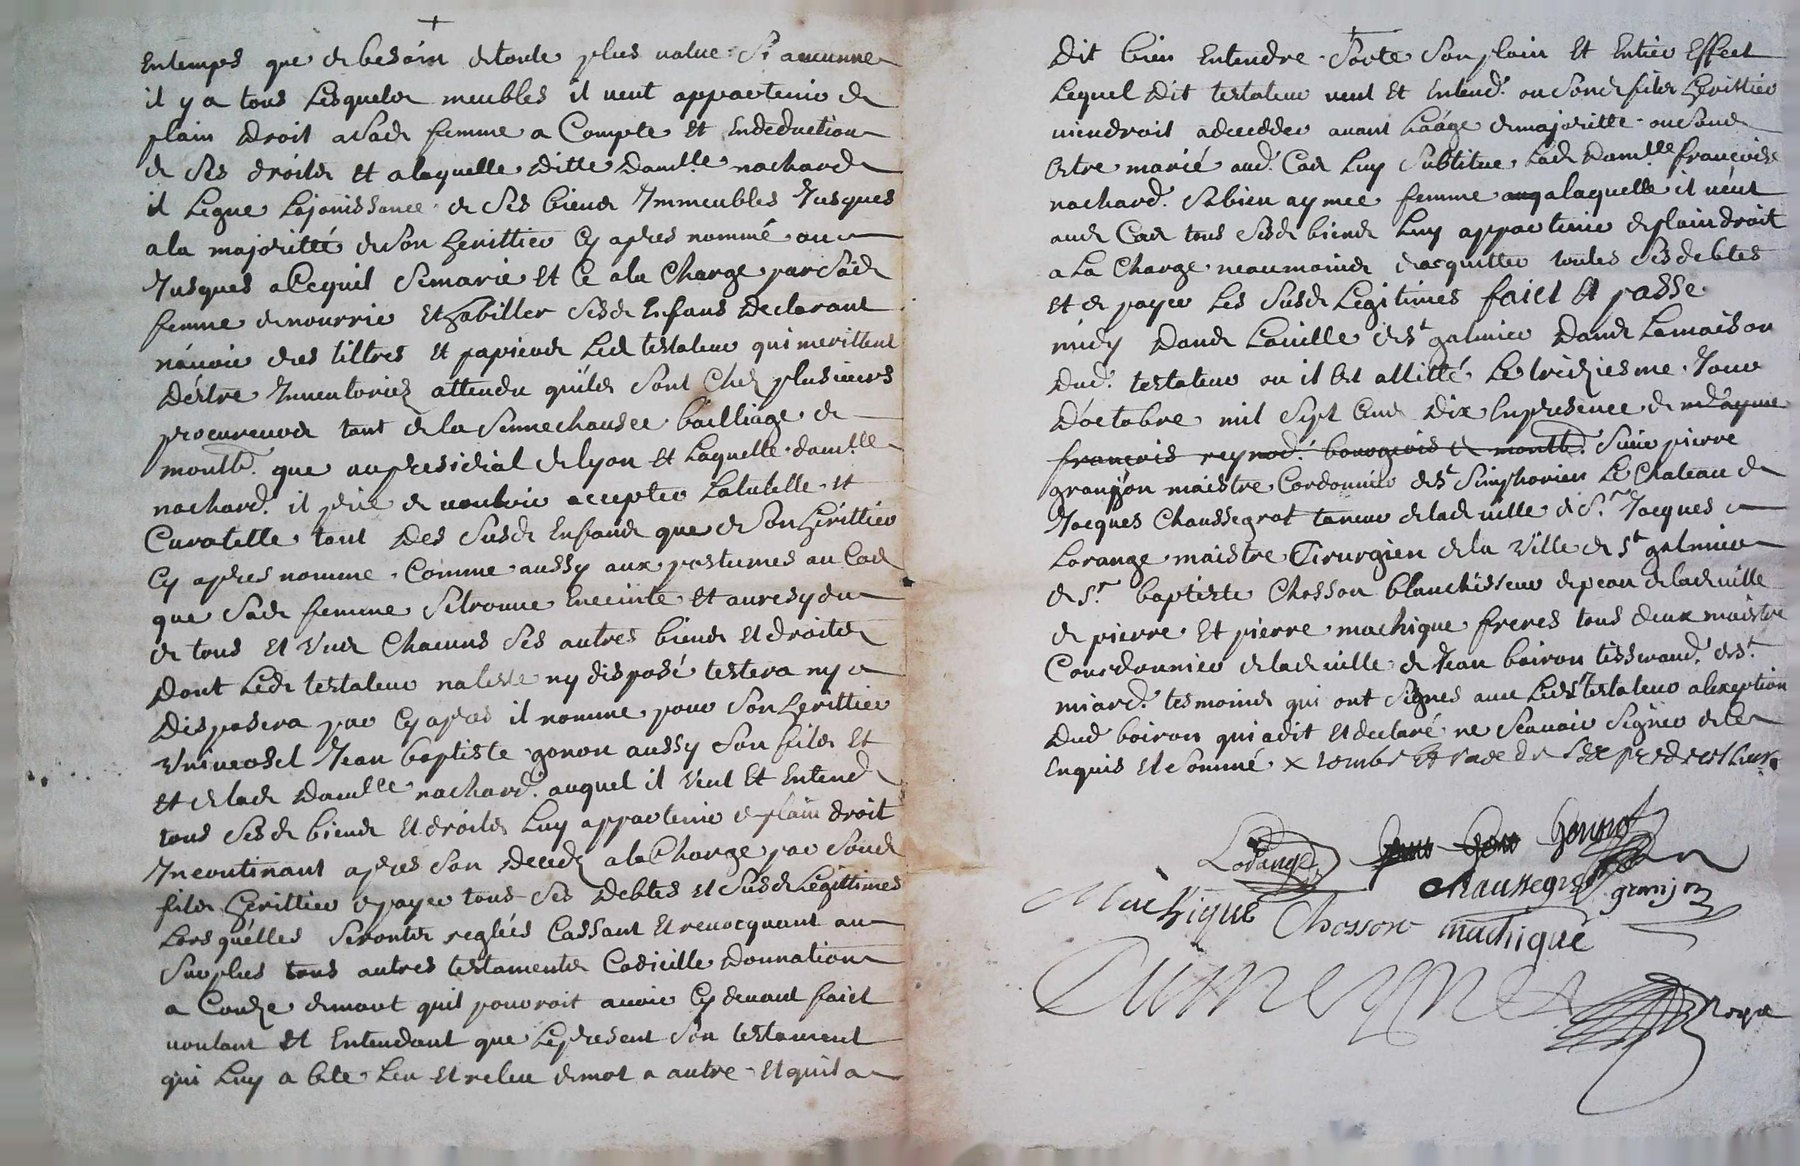 Entemps que de besoin detoute plus value Si aucunne
il y a tous Lesquelds meubles il veut appartenir de
plain droit a Sade femme a Compte et Endeduction
de Ses droits et alaquelle ditte damlle nachard
il Legue Lajouissance de Ses biends Immeubles Jusques
ala majoritté de Son herittier Cy apres nommé ou
Jusques aCequil Semarie et Ce ala Charge par Sade
femme denourrir Et habiller Sesd Enfans Declarant
n'avoir des tiltres et papiers Led testateur qui merittent
Déstre Inventoriez attendu quilds Sont Chez plusieurs
procureurs tant dela Sennechausee bailliage de
montb. que aupresidial delyon et Laquelle damlle
nachard. il prie de vouloir accepter Latutelle et
Curatelle tant Des Susd Enfands que de Son herittier
Cy apres nomme Comme aussy aux postumes au Cas
que Sade femme Setrouve Enceinte et auresydu
de tous et Uns Chacuns Ses autres biends et droits
Dont Led testateur na testé ny disposé testera ny
Disposera par Cy apres il nomme pour Son herittier
Universel Jean baptiste gonon aussy Son filds et
et delade Damlle nachard. auquel il Veut Et Entend
tous Sesd biends et droits Luy appartenir deplain droit
Incontinant apres Son Deceds ala Charge par Sond
filds herittier depayer tous Ses Debtes et Susd Legittimes
Lors quelles Seronts reglées Cassant Et revocquant au
Surplus tous autres testaments Codicille Donnation
a Cauze demort quil pouvroit avoir Cy devant faict
voulant et Entendant que Lepresent Son testament
qui Luy a éte Leu et releu demot a autre et quil a
Dit bien Entendre Sorte Son plain Et Entier Effect
Lequel Dit testateur veut Et Entend. ou Sond filds herittier
viendroit adecedder avant Laáge demajoritté ou Sans
Estre marié aud. Cas Luy Subtitue Lade Damlle françoise
nachard. Sabien aymee femme alaquelle il veut
aud Cas tous Sesd biends Luy appartenir deplain droit
a La Charge neaumoinds dacquitter toutes Sesdebtes
et de payer Les Susd Legitimes faict et passe
midy Dands Laville de St galmier Dands Lamaison
Dud. testateur ou il est allitté Le treiziesme Jour
D'octobre mil Sept Cens Dix Enpresence de
francois reynod. bourgeois de montb. Sieur pierre
granjon maistre Cordonnier de St Simphorien Le Chateau de
Jacques Chaussegrot taneur delade ville de Sr. Jacques
Lorange maistre Cirurgien dela Ville de St galmier
de Sr. baptiste Chosson blanchisseur depeau delade ville
de pierre et pierre machique freres tous deux maistre
Courdonnier delade ville de Jean boiron tisserand. de St.
miard. tesmoinds qui ont Signes avec Led testateur alexeption
Dud boiron qui adit Et declaré ne Scavoir Signer de Ce
Enquis et Sommé
Lorange gonon
chaussegrot granjon
Machique Chosson machique
Dumeynet